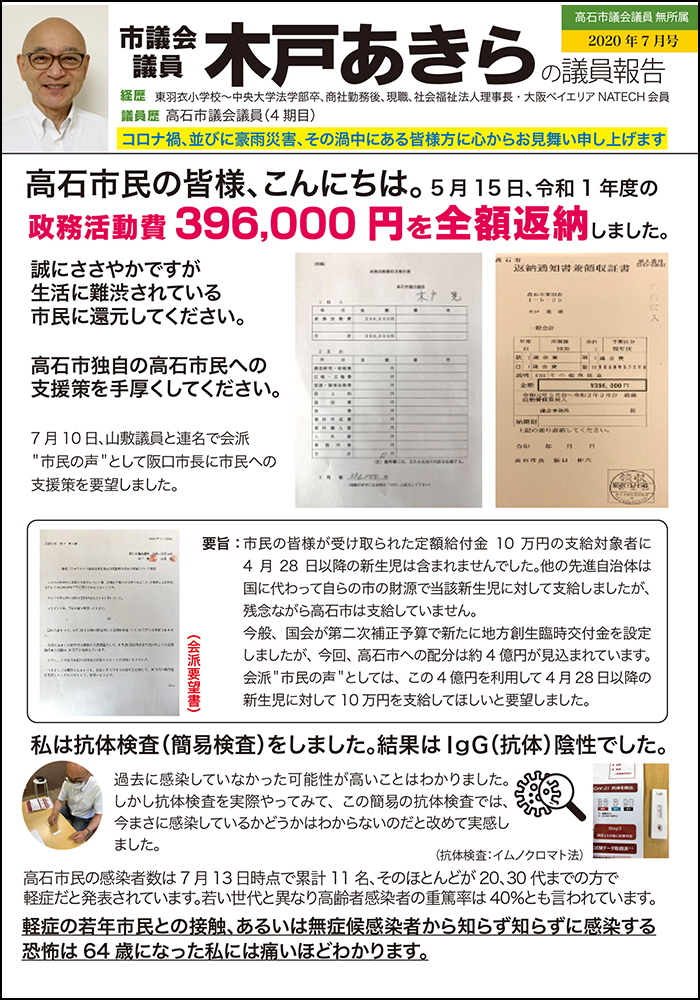 高石市議会議員 無所属
2020年7月号
市議会
議員
木戸あきらの議員報告
経歴 東羽衣小学校～中央大学法学部卒、商社勤務後、現職、社会福祉法人理事長・大阪ベイエリアNATECH会員
議員歴 高石市議会議員(4期目)
コロナ禍、並びに豪雨災害、その渦中にある皆様方に心からお見舞い申し上げます
高石市民の皆様、こんにちは。5月15日、令和1年度の
政務活動費396,000円を全額返納しました。
誠にささやかですが
生活に難渋されている
市民に還元してください。
高石市独自の高石市民への
支援策を手厚くしてください。
7月10日、山敷議員と連名で会派
"市民の声"として阪口市長に市民への
支援策を要望しました。
高石市
返納通知書兼領収証書
一般会計
金額 ¥396,000円
高石市長 阪口 伸六
領収
396,000
(会派要望書)
要旨:市民の皆様が受け取られた定額給付金 10 万円の支給対象者に
4 月 28 日以降の新生児は含まれませんでした。他の先進自治体は
国に代わって自らの市の財源で当該新生児に対して支給しましたが、
残念ながら高石市は支給していません。
今般、国会が第二次補正予算で新たに地方創生臨時交付金を設定
しましたが、今回、高石市への配分は約4億円が見込まれています。
会派"市民の声"としては、この4億円を利用して4月28日以降の
新生児に対して10万円を支給してほしいと要望しました。
私は抗体検査(簡易検査)をしました。結果はIgG(抗体)陰性でした。
過去に感染していなかった可能性が高いことはわかりました。
しかし抗体検査を実際やってみて、この簡易の抗体検査では、
今まさに感染しているかどうかはわからないのだと改めて実感し
ました。
(抗体検査:イムノクロマト法)
Step3
高石市民の感染者数は7月13日時点で累計11名、そのほとんどが20、30代までの方で
軽症だと発表されています。若い世代と異なり高齢者感染者の重篤率は40%とも言われています。
軽症の若年市民との接触、あるいは無症候感染者から知らず知らずに感染する
恐怖は64歳になった私には痛いほどわかります。